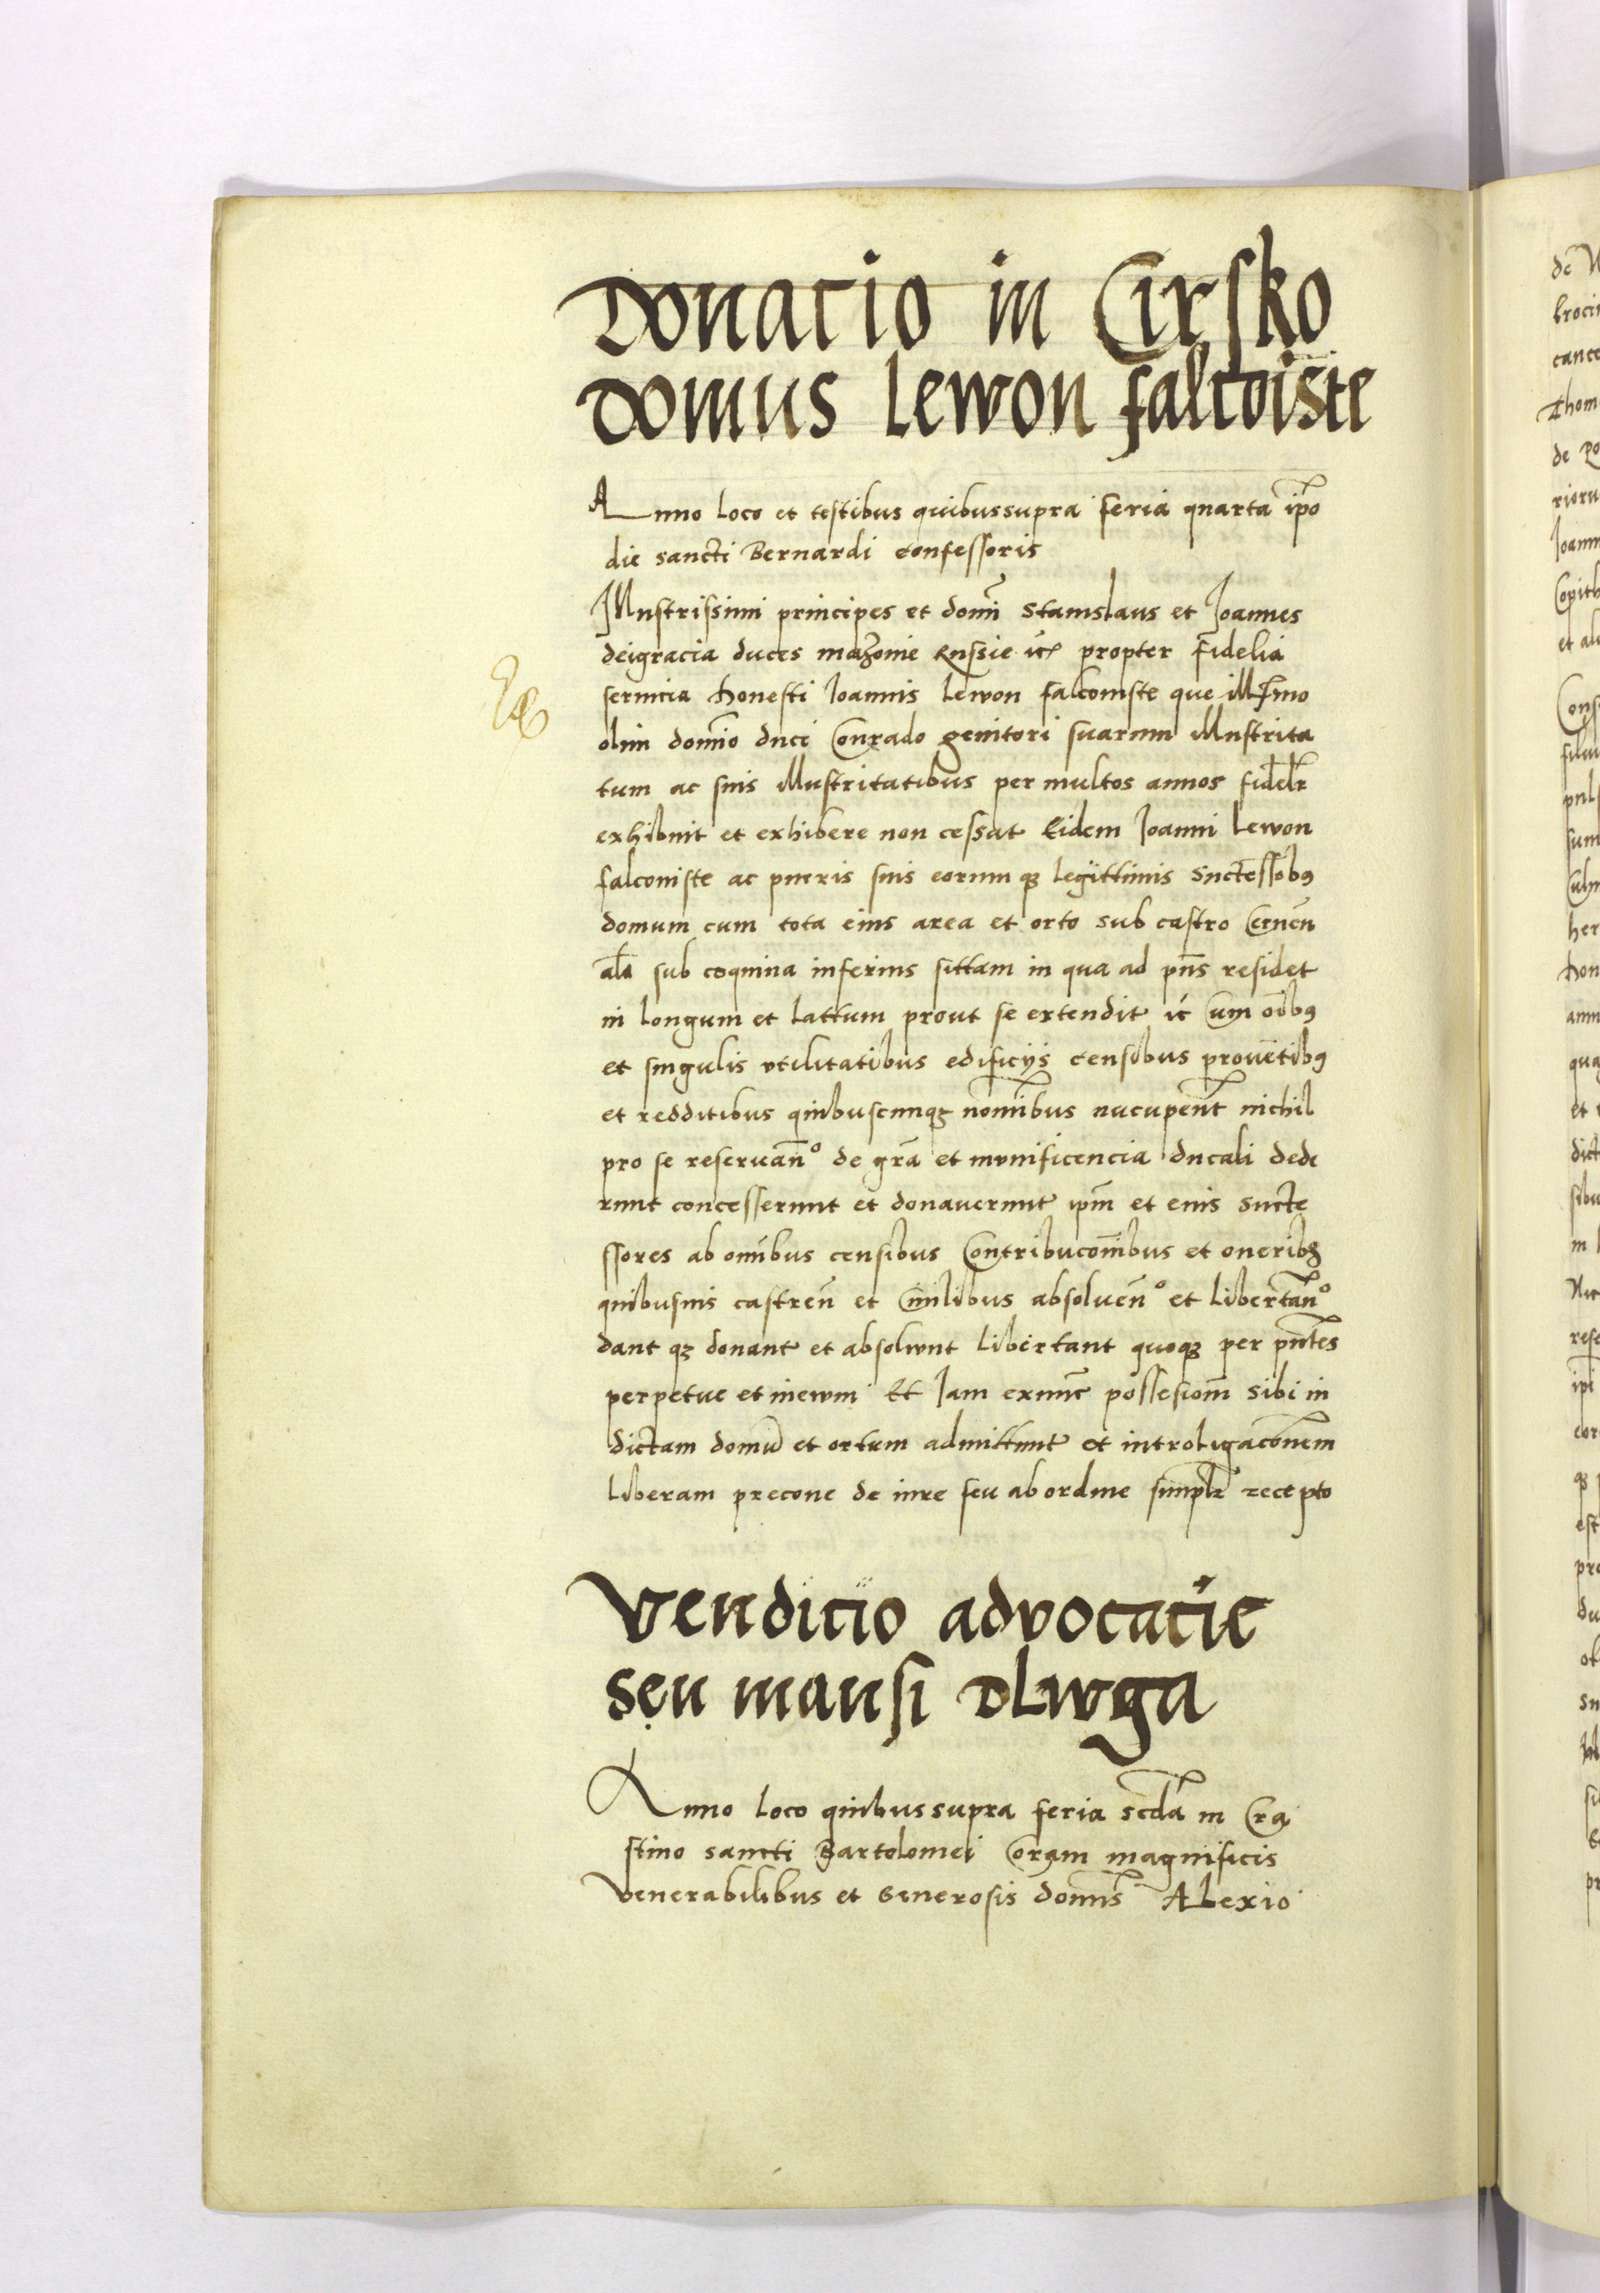 Donacio in Cirsko
Domus Lewon falcoiste
Anno loco et testibus quibussupra feria quarta ip̄o
die sancti Bernardi confessoris
Illustrissimi principes et domī Stanislaus et Ioannes
deigracia duces mazomie Russie ꝛc̄ propter fidelia
seruicia honesti Ioannis Lewon falconiste que illr̄mo
olim domīo duci Conrado genitori suarum illustrita
tum ac suis illustritatibus per multos annos fidelr̄
exhibuit et exhibere non cessat Eidem Ioanni Lewon
falconiste ac pueris suis eorumqꝫ legittimis Suctessōbꝯ
domum cum tota eius area et orto sub castro Cernēn
al̄a sub coquina inferius sittam in qua ad pn̄s residet
in longum et lattum prout se extendit ꝛc̄ Cum oībꝯ
et singulis vtilitatibus edificijs censibus prouētibꝯ
et redditibus quibuscunqꝫ nomībus nūcupent̄ nichil
pro se reseruan̄º de grā et mvnificencia ducali dede
runt concesserunt et donauerunt ipm̄ et eius Sucte
ssores ab omībus censibus Contribucom̄ibus et oneribꝫ
quibusuis castren̄ et Ciuilibus absoluen̄º et libertan̄º
dant qꝫ donant et absolwnt libertant quoqꝫ per pn̄tes
perpetue et inewm Et Iam exnunc possesiom̄ sibi in
dictam domū et ortum admittunt et introligacōnem
liberam precone de iure seu ab ordine simplr̄ recepto
Vendicio advocacie
seu mansi Dlwga
Anno loco quibussupra feria scd̄a in Cra
stino sancti Bartolomei Coram magnificis
Venerabilibus et Generosis domīs Alexio